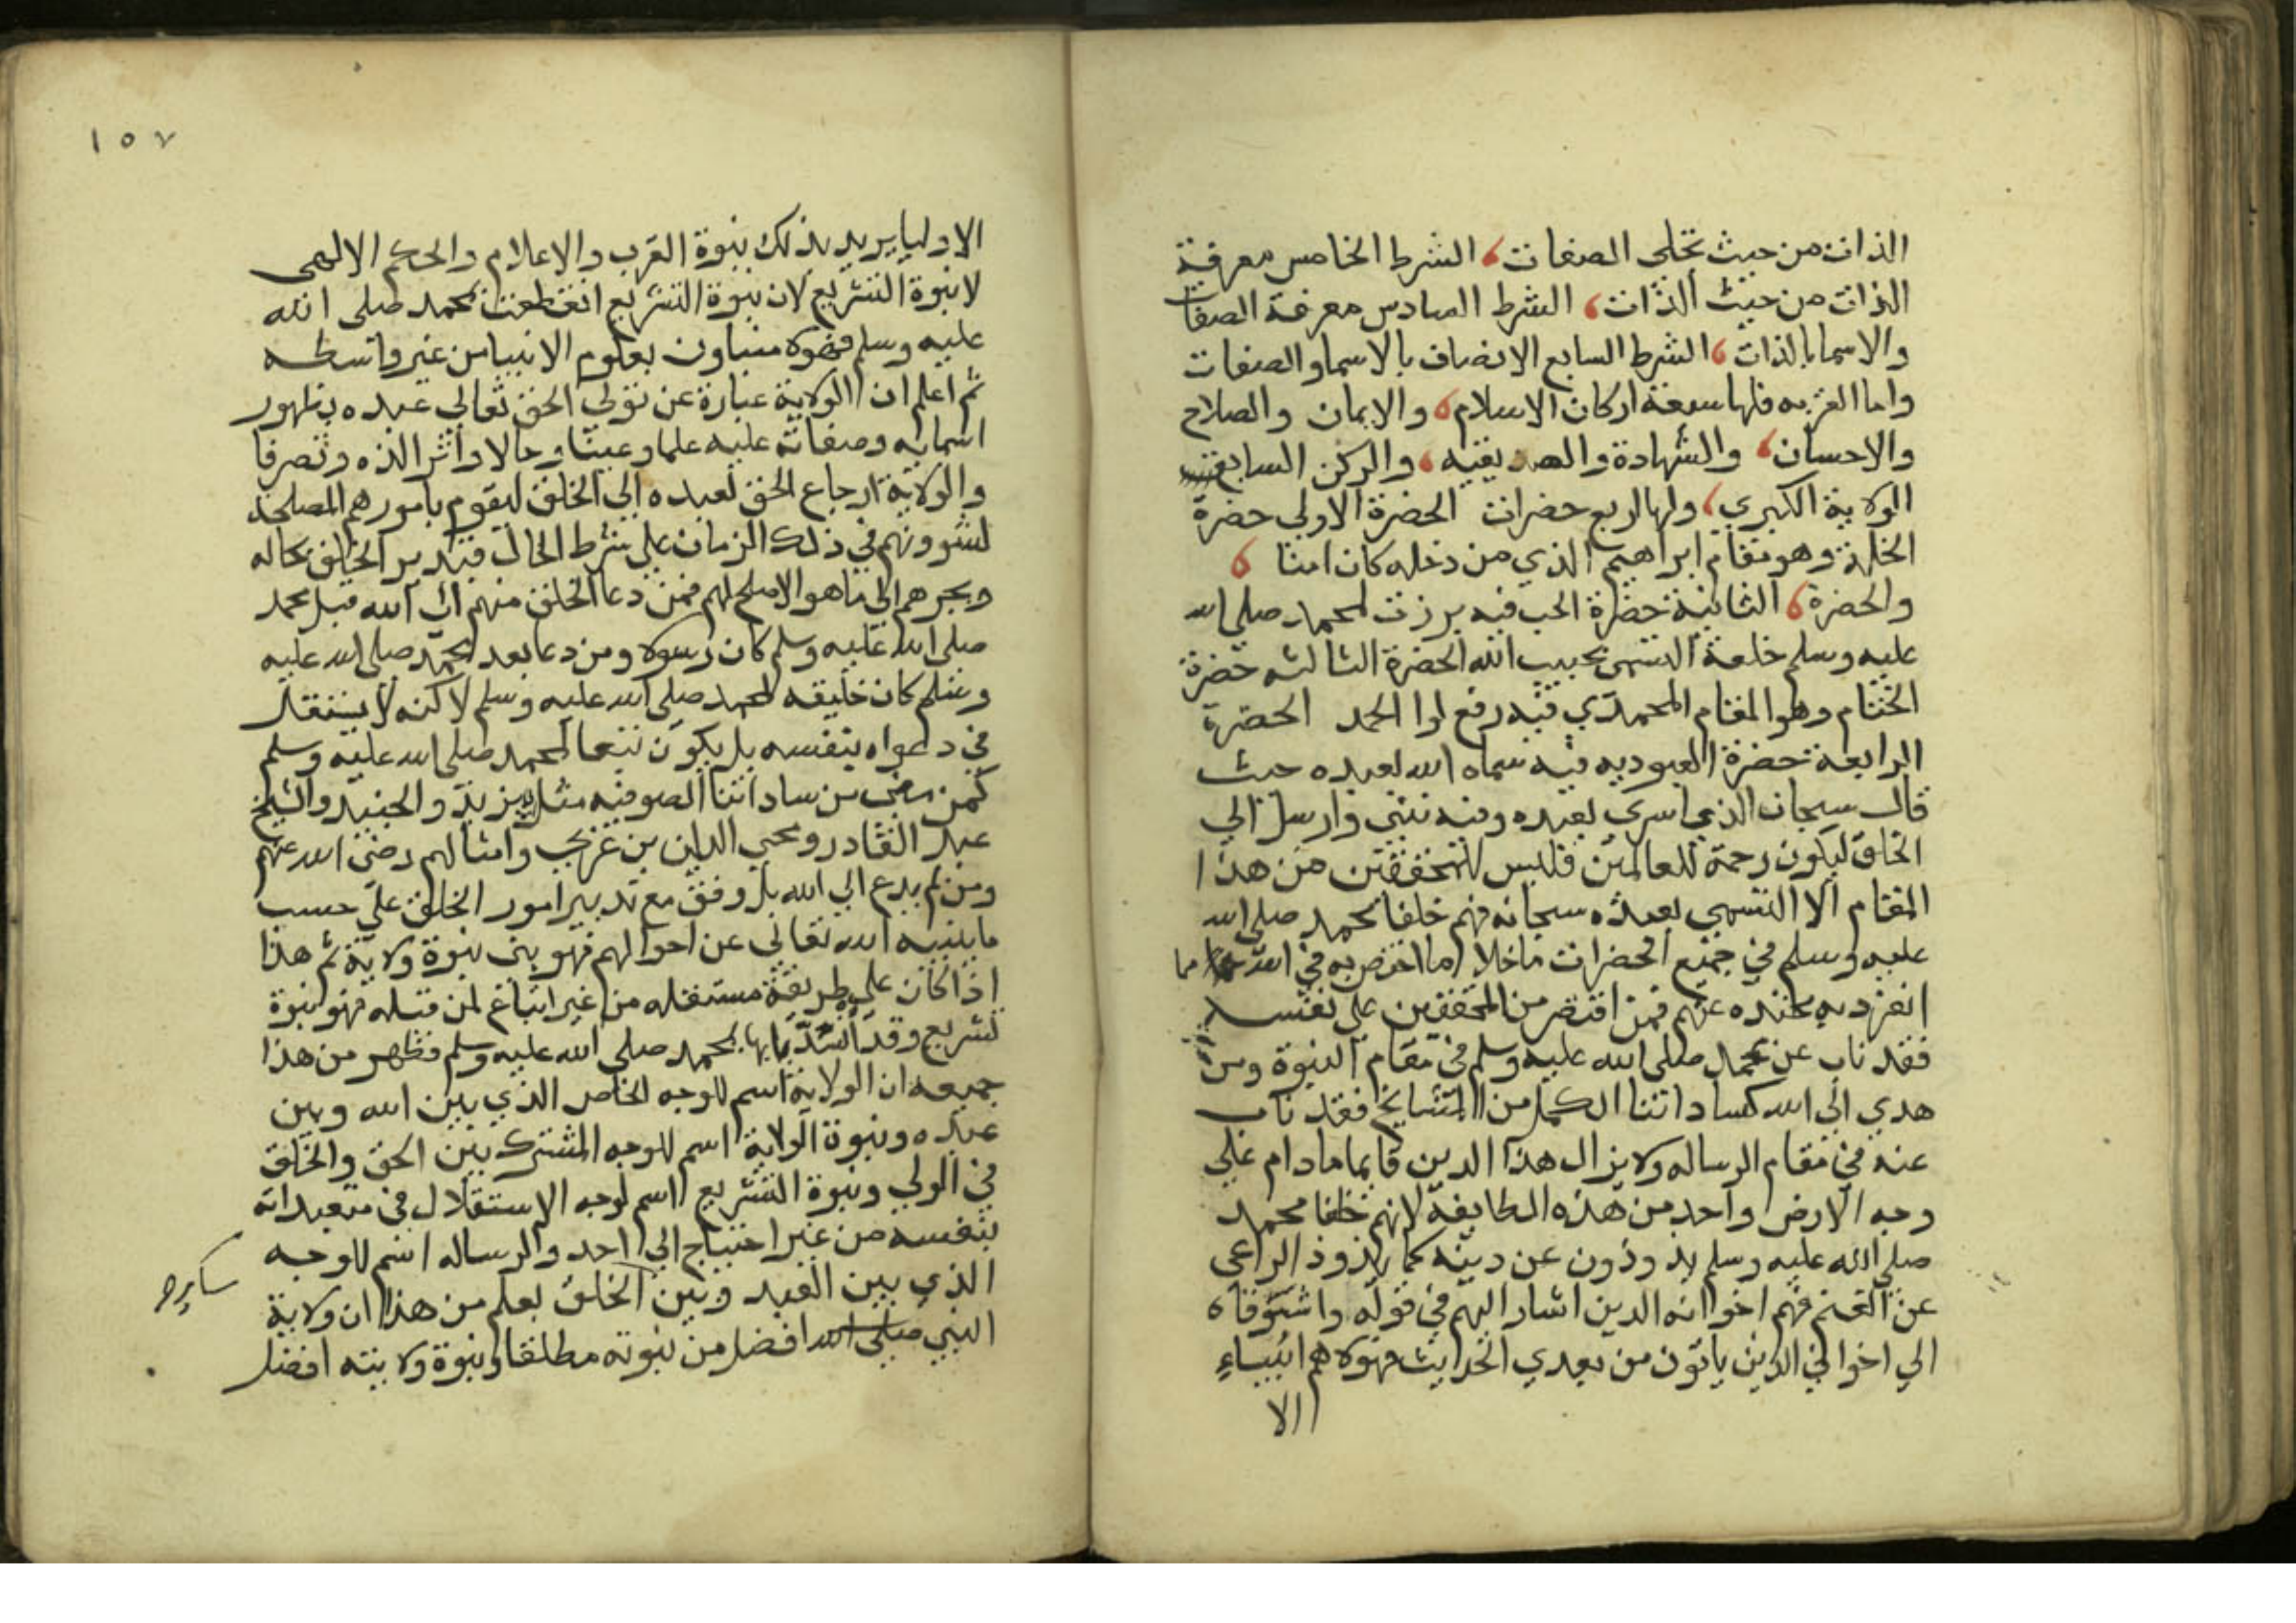 الذات من حيث تجلي الصفات، الشرط الخامس معرفة
الذات من حيث الذات، الشرط السادس معرفة الصفات
والاسما بالذات، الشرط السابع الاتصاف بالاسما والصفات
واما القربه فلها سبعة اركان الاسلام، والايمان والصلاح
والاحسان، والشهادة والصديقيه، والركن السابع
الولاية الكبري، ولها اربع حضرات الحضرة الاولي حضرة
الخلة وهو مقام ابراهيم الذي من دخله كان امنا ،
والحضرة، الثانية حضرة الحب فيه برزت لمحمد صلى الله
عليه وسلم خلعة التسمي بحبيب الله الحضرة الثالثه حضرة
الختام وهو المقام المحمدي فيه رفع لوا الحمد الحضرة
الرابعة حضرة العبوديه فيه سماه الله بعبده حيث
قال سبحان الذي اسري بعبده وفيه نبي وارسل الي
الخلق ليكون رحمة للعالمين فليس للمحققين من هذا
المقام الا التسمي بعبده سبحانه فهم خلفا محمد صلى الله
عليه وسلم في جميع الحضرات ما خلا ما اختص به في الله مما
انفرد به محتده عنهم فمن اقتصر من المحققين علي نفسه
فقد ناب عن محمد صلى الله عليه وسلم في مقام النبوة ومن
هدي الي الله كساداتنا الكمل من المشايخ فقد ناب
عنه في مقام الرساله ولا يزال هذا الدين قايما ما دام علي
وجه الارض واحد من هذه الطايفة لانهم خلفا محمد
صلى الله عليه وسلم يذودون عن دينه كما يذود الراعي
عن الغنم فهم اخوانه الدين اشار اليهم في قوله واشوقاه
الي اخواني الذين ياتون من بعدي الحديث فهولا هم انبياء
الا
١٥٧
الاوليا يريد بذلك نبوة القرب والاعلام والحكم الالهي
لا نبوة التشريع لان نبوة التشريع انقطعت بمحمد صلى الله
عليه وسلم فهولا منباون بعلوم الانبيا من غير واسطه
ثم اعلم ان الولاية عبارة عن تولي الحق تعالي عبده بظهور
اسمايه وصفاته عليه علما وعينا وحالا واثر الذه وتصرفا
والولاية ارجاع الحق لعبده الي الخلق ليقوم بامورهم المصلحة
لشوونهم في ذلك الزمان علي شرط الحال فيدبر الخلق بحاله
ويجرهم الي ما هو الاصلح لهم فمن دعا الخلق منهم الي الله قبل محمد
صلى الله عليه وسلم كان رسولا ومن دعا بعد محمد صلى الله عليه
وسلم كان خليفه لمحمد صلى الله عليه وسلم لاكنه لا يستقل
في دعواه بنفسه بل يكون تبعا لمحمد صلى الله عليه وسلم
كمن مضي من ساداتنا الصوفيه مثل يزيد والجنيد والشيخ
عبد القادر ومحي الدين بن عربي وامثالهم رضي الله عنهم
ومن لم يدع الي الله بل وقف مع تدبير امور الخلق علي حسب
ما ينبيه الله تعالي عن احوالهم فهو نبي نبوة ولاية ثم هذا
اذا كان علي طريقة مستقله من غير اتباع لمن قبله فهو نبوة
تشريع وقد انسد بابها بمحمد صلى الله عليه وسلم فظهر من هذا
جميعه ان الولاية اسم للوجه الخاص الذي بين الله وبين
عبده ونبوة الولاية اسم للوجه المشترك بين الحق والخلق
في الولي ونبوة التشريع اسم لوجه الاستقلال في متعبداته
بنفسه من غير احتياج الي احد والرساله اسم للوجه
الذي بين العبد وبين الخلق يعلم من هذا ان ولاية
النبي صلى الله افضل من نبوته مطلقا ونبوة ولايته افضل